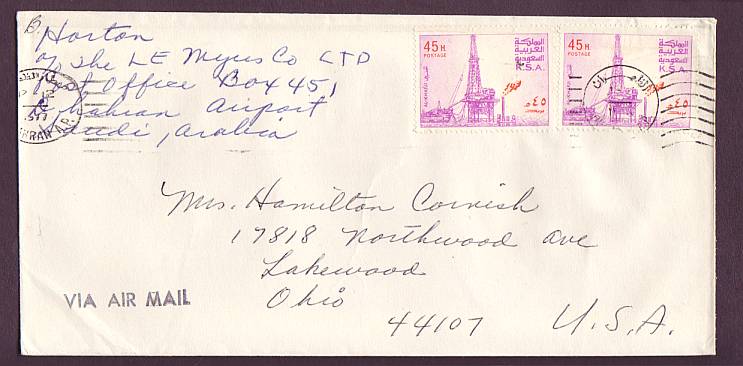 B. Horton
c/o The LE Myers Co LTD
Post Office Box 451
Dhahran Airport
Saudi, Arabia
45H
POSTAGE
المملكة
العربية
السعودية
K.S.A.
٤٥
45H
POSTAGE
المملكة
العربية
السعودية
K.S.A.
٤٥
Mrs. Hamilton Cornish
17818 Northwood Ave
Lakewood
Ohio
44107 U.S.A.
VIA AIR MAIL